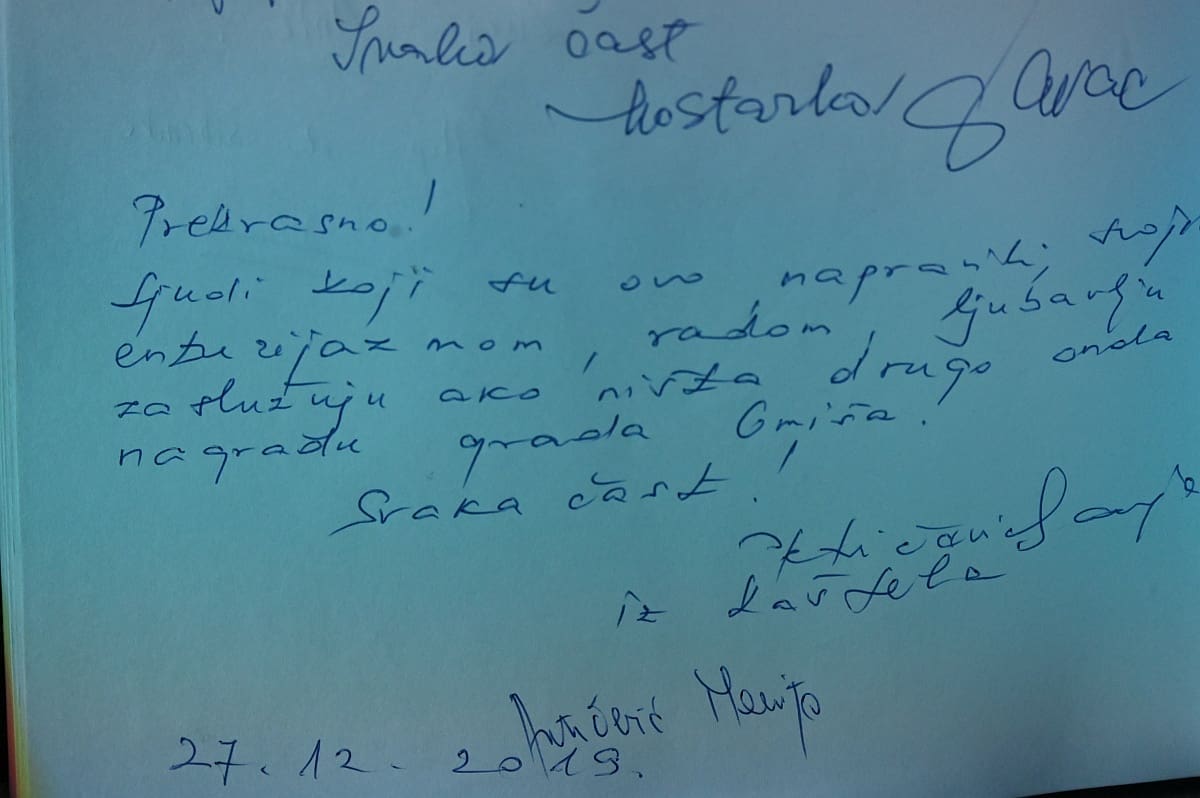 Svaka čast
Prekrasno!
ljudi koji su ovo napravili, svoji
entuzijazmom, radom, ljubavlju
zaslužuju ako ništa drugo onda
nagradu grada Omiša.
Svaka čast!
iz Kaštela
Antičević Marija
27. 12. 2019.